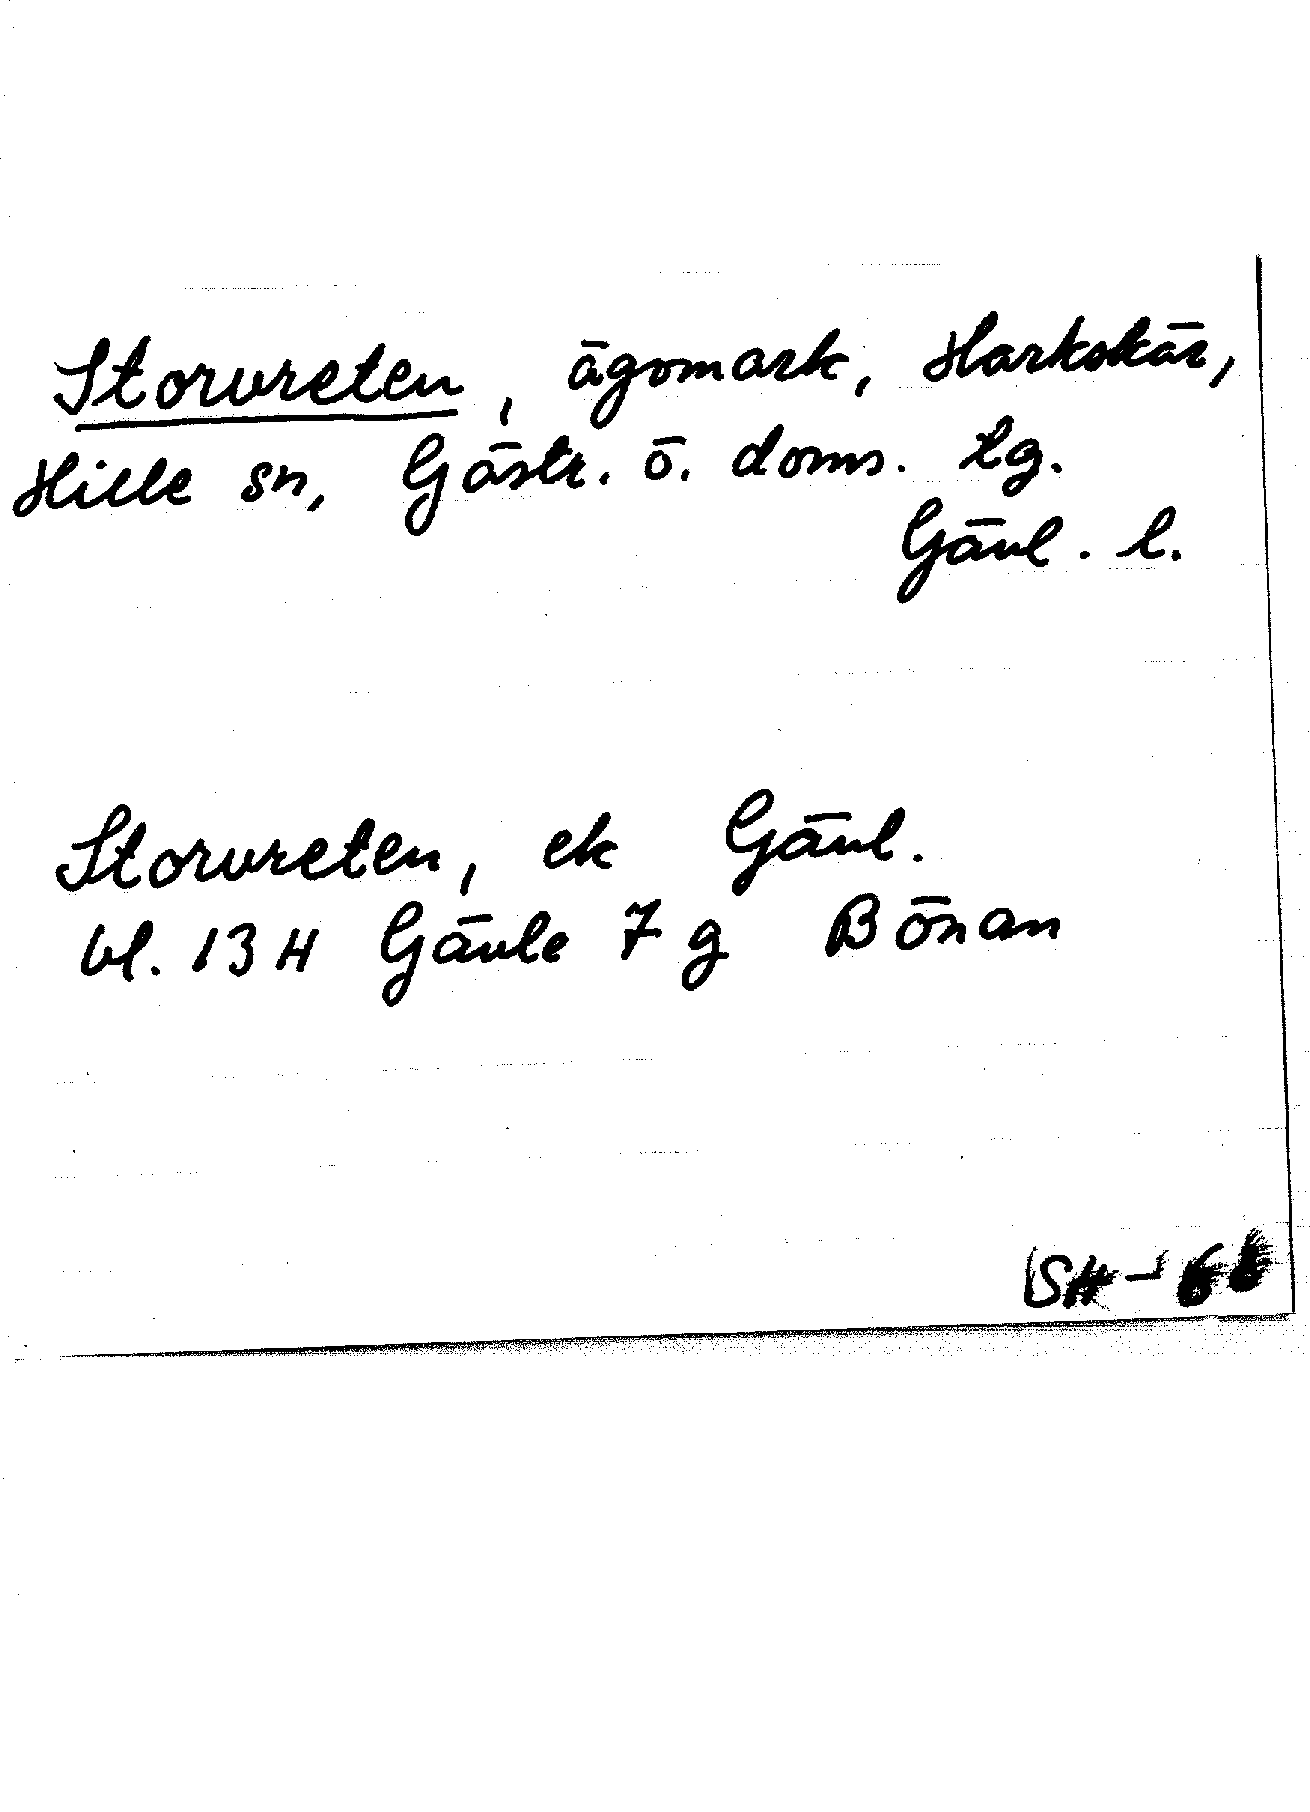 Storvreten, ägomark, Harkskär,
Hille sn, Gästr. ö. doms. tg.
Gävl. l.
Storvreten, ek Gävl.
bl. 13 H Gävle 7 g Bönan
SH-68